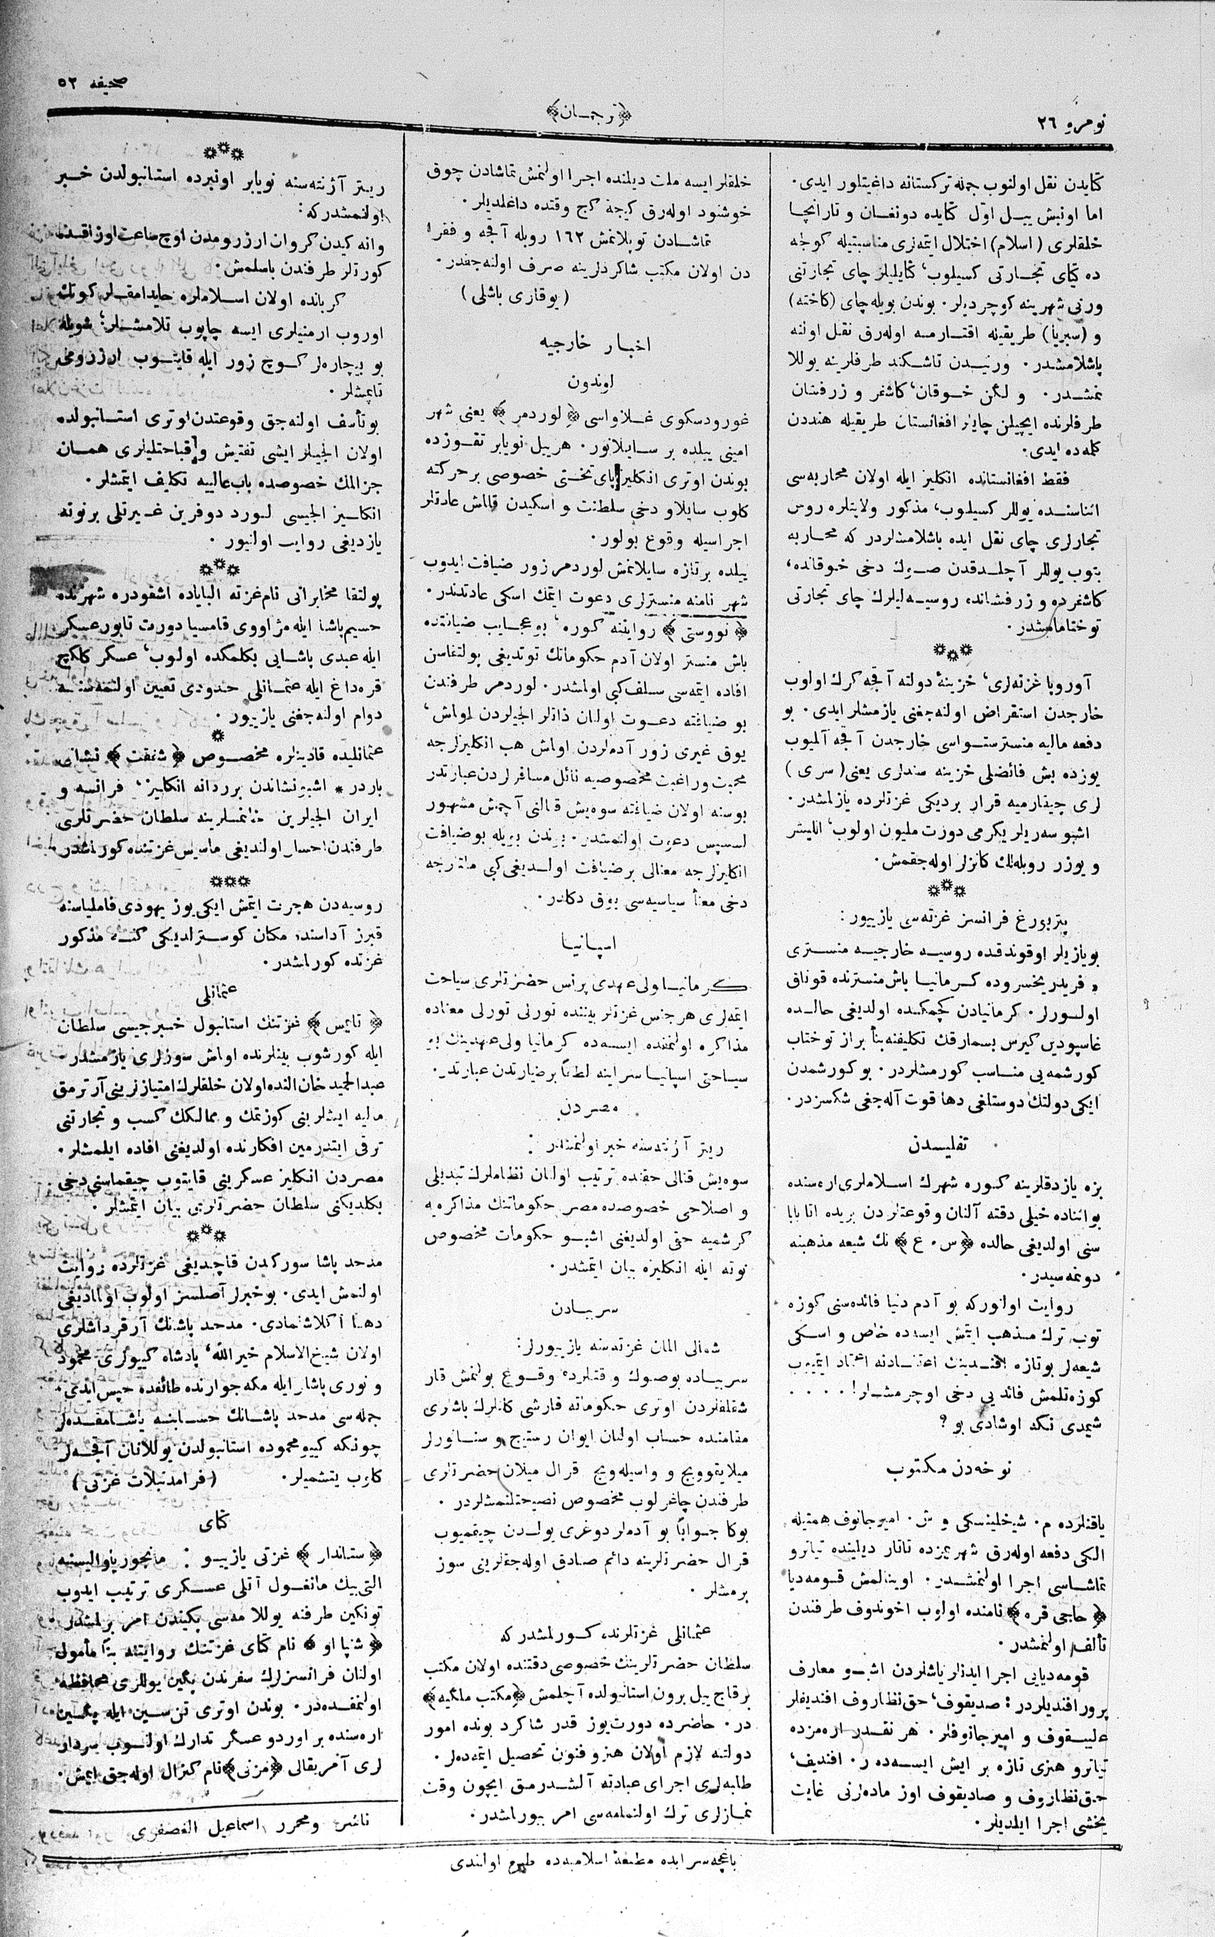 نومرو ٢٦
﴿ترجمان﴾
صحیفه ٥٢
كتایدن نقل اولنوب جمله تركستانه داغیتلور ایدی.
اما اونبش ییل اول كتایده دونغان و تارانچا
خلقلری (اسلام) اختلال ایتمه‌لری مناسبتیله كولجه
ده كتای تجارتی كسیلوب، كتایلیلر چای تجارتنی
ورنی شهرینه كوچردیلر. بوندن بویله چای (كاخته)
و (سبریا) طریقیله اقتارمه اوله‌رق نقل اولنه
باشلامشدر. ورنیدن تاشكند طرفلرینه یوللا
نمشدر. و لكن خوقان، كاشغر و زرفشان
طرفلرنده ایچیلن چایلر افغانستان طریقیله هنددن
كلمه‌ده ایدی.
فقط افغانستانده انكلیز ایله اولان محاربه‌سی
اثناسنده یوللر كسیلوب، مذكور ولایتلره روس
تجارلری چای نقل ایده باشلامشلردر كه محاربه
بتوب یوللر آچلدقدن صوك دخی خوقانده،
كاشغرده و زرفشانده روسیه‌لیلرك چای تجارتی
توختامامشدر.
آوروپا غزته‌لری، خزینهٔ دولته آقچه كرك اولوب
خارجدن استقراض اولنه‌جغنی یازمشلر ایدی. بو
دفعه مالیه منسترستواسی خارجدن آقچه آلمیوب
یوزده بش فائضلی خزینه سندلری یعنی (سری)
لری چیقارمیه قرار بردیكی غزتلرده یازلمشدر.
اشبو سه‌ریلر یكرمی دورت ملیون اولوب، اللیشر
و یوزر روبله‌لك كاغزلر اوله‌جقمش.
پتربورغ فرانسز غزته‌سی یازییور:
بو یازیلر اوقوندقده روسیه خارجیه منستری
فریدریخسروده كرمانیا باش منسترنده قوناق
اولورلر. كرمانیادن كچمكسده اولدیغی حالده
غاسپودین كیرس بسمارقك تكلیفنه بناً براز توختاب
كورشمه‌یی مناسب كورمشلردر. بو كورشمدن
ایكی دولتك دوستلغی دها قوت آله‌جغی شكسزدر.
تفلیسدن
بزه یازدقلرینه كوره شهرك اسلاملری اره‌سنده
بو اثناده خیلی دقته آلنان وقوعتلردن بریده اتا بابا
سنی اولدیغی حالده ﴿س. ع﴾ نك شیعه مذهبنه
دونمه‌سیدر.
روایت اولنور كه بو آدم دنیا فائده‌سنی كوزه
توب ترك مذهب ایتمش ایسه‌ده خاص و اسكی
شیعه‌لر بو تازه افندینك اعتقادنه اعتماد ایتمیوب
كوزه‌تلمش فائده‌یی دخی اوچرمشلر! . . . .
شیمدی نكد اوشادی بو؟
نوخه‌دن مكتوب
یاقنلرده م. شیخلینسكی و ش. امیرجانوف همتیله
الكی دفعه اوله‌رق شهریمزده تاتار دیلینده تیاترو
تماشاسی اجرا اولنمشدر. اوینالمش قومه‌دیا
﴿حاجی قره﴾ نامنده اولوب اخوندوف طرفندن
تألف اولنمشدر.
قومه‌دیایی اجرا ایدنلر یاشلردن اشبو معارف
پرور افندیلردر: صدیقوف، حق‌نظاروف افندیلر
علیوف و امیرجانوفلر. هر نقدر اره‌مزده
تیاترو هنری تازه بر ایش ایسه‌ده ر. افندیف،
حق‌نظاروف و صادیقوف اوز ماده‌لرنی غایت
یخشی اجرا ایلدیلر.
خلقلر ایسه ملت دیلنده اجرا اولنمش تماشادن چوق
خوشنود اوله‌رق كیجه كچ وقتده داغلدیلر.
تماشادن توپلانمش ١٦٢ روبله آقچه و فقرا
دن اولان مكتب شاكردلرینه صرف اولنه‌جقدر.
(یوقاری باشلی)
اخبار خارجیه
لوندون
غورودسكوی غلاواسی ﴿لوردمر﴾ یعنی شهر
امینی ییلده بر سایلانور. هر ییل نویابر تقوزده
بوندن اوتری انكلیز پای تختی خصوصی بر حركته
كلوب سایلاو دخی سلطنت و اسكیدن قالمش عادتلر
اجراسیله وقوع بولور.
ییلده بر تازه سایلانمش لوردمر زور ضیافت ایدوب
شهر نامنه منسترلری دعوت ایتمك اسكی عادتدندر.
﴿نووستی﴾ روایتنه كوره، بو عجایب ضیافتده
باش منستر اولان آدم حكوماتك توتدیغی پولتقاسن
افاده ایتمه‌سی سلف كبی اولمشدر. لوردمر طرفندن
بو ضیافته دعوت اولنان ذاتلر الچیلردن اولماش،
یوق غیری زور آدملردن اولماش هب انكلیزلرجه
محبت و راغبت مخصوصیه نائل مسافرلردن عبارتدر
بو سنه اولان ضیافته سوه‌یش قنالنی آچمش مشهور
لسسپس دعوت اولنمشدر. بوندن بویله بو ضیافت
انكلیزلرجه معنالی بر ضیافت اولدیغی كبی ملتلرجه
دخی معناً سیاسیه‌سی یوق دكلدر.
اسپانیا
كرمانیا ولی عهدی پرنس حضرتلری سیاحت
ایتمه‌لری هر جنس غزتلر بیننده تورلی تورلی معناده
مذاكره اولنمقده ایسه‌ده كرمانیا ولی عهدینك بو
سیاحتی اسپانیا سراینه لطفاً بر ضیارتدن عبارتدر.
مصردن
ریتر آژنته‌سنه خبر اولنمشدر:
سوه‌یش قنالی حقنده ترتیب اولنان نظاملرك تبدیلی
و اصلاحی خصوصده مصر حكوماتنك مذاكره‌یه
كرشمیه حقی اولدیغنی اشبو حكومات مخصوص
نوته ایله انكلیزه بیان ایتمشدر.
سربیادن
شمالی المان غزته‌سنه یازییورلر:
سربیاده بوصوك وقتلرده وقوع بولنمش قار
شقلقلردن اوتری حكوماته قارشی كانلرك باشلری
مقامنده حساب اولنان ایوان رستیچ و سناتورلر
میلایقوویچ و واسیله‌ویچ قرال میلان حضرتلری
طرفندن چاغرلوب مخصوص نصیحتلنمشلردر.
بوكا جواباً بو آدملر دوغری یولدن چیقمیوب
قرال حضرتلرینه دائم صادق اوله‌جقلرینی سوز
برمشلر.
عثمانلی غزتلرنده كورلمشدر كه
سلطان حضرتلرینك خصوصی دقتنده اولان مكتب
بر قاچ ییل برون استانبولده آچلمش ﴿مكتب ملكیه﴾
در. حاضرده دورت یوز قدر شاكرد بونده امور
دولته لازم اولان هنر و فنون تحصیل ایتمه‌ده‌لر.
طلبه‌لری اجرای عبادته آلشدرمق ایچون وقت
نمازلری ترك اولنمامه‌سی امر بیورلمشدر.
ریتر آژنته‌سنه نویابر اونبرده استانبولدن خبر
اولنمشدر كه:
وانه كیدن كروان ارزرومدن اوچ ساعت اوزاقده
كوردلر طرفندن باسلمش.
كربانده اولان اسلاملره حایدامقلر كوتك
اوروب ارمنیلری ایسه چاپوب تلامشلر؛ شویله
بو بیچاره‌لر كوچ زور ایله قایتوب ارزرومغه
تایمشلر.
بو تأسف اولنه‌جق وقوعتدن اوتری استانبولده
اولان الچیلر ایشی تفتیش و قباحتلیلری همان
جزالمك خصوصده باب عالییه تكلیف ایتمشلر.
انكلیز الچیسی لورد دوفرین غیرتلی بر نوته
یازدیغی روایت اولنیور.
پولتقا مخابراتی نام غزته البایاده اشقودره شهرنده
حسیم پاشا ایله مژاووی قامسیا دورت تابور عسكر
ایله عبدی پاشایی بكلمكده اولوب، عسكر كلكچ
قره‌داغ ایله عثمانلی حدودی تعیین اولنمه‌سنه
دوام اولنه‌جغنی یازییور.
عثمانلیده قادینلره مخصوص ﴿شفقت﴾ نشانی
باردر. اشبو نشاندن برردانه انكلیز، فرانسه و
ایران الچیلرین خانملرینه سلطان حضرتلری
طرفندن احسان اولندیغی ماسیس غزتنده كورلمشدر
روسیه‌دن هجرت ایتمش ایكی یوز یهودی فاملیاسنه
قبرز آداسنده مكان كوسترلدیكی كنه مذكور
غزتده كورلمشدر.
عثمانلی
﴿تایمس﴾ غزتنك استانبول خبرجیسی سلطان
ایله كورشوب بینلرنده اولمش سوزلری یازمشدر
عبدالحمید خان التنده اولان خلقلرك امتیازلرینی آرترمق
مالیه ایشلرینی كوزتمك و ممالكك كسب و تجارتنی
ترقی ایتدرمین افكارنده اولدیغنی افاده ایلمشلر.
مصردن انكلیز عسكرینی قایتوب چیقماسنی دخی
بكلدیكنی سلطان حضرتلری بیان ایتمشلر.
مدحد پاشا سوركندن قاچدیغی غزتلرده روایت
اولنمش ایدی. بو خبرلر آصلسز اولوب اولمادیغی
دها آكلاشلمادی. مدحد پاشانك آرقرداشلری
اولان شیخ الاسلام خیرالله، پادشاه كییولری محمود
و نوری پاشالر ایله مكه جوارنده طائفده حبس ایدی.
جمله‌سی مدحد پاشانك حسابنه یاشامقده‌لر
چونكه كییو محموده استانبولدن یوللانان آقچه‌لر
كلوب یتشمیلر. (فرامدنبلات غزتی)
كتای
﴿ستاندار﴾ غزتی یازییو: مانچور پاوالیسنه
التی بیك مانغول آتلی عسكری ترتیب ایدوب
تونكین طرفنه یوللامه‌سی پكیندن امر برلمشدر.
﴿شنپاو﴾ نام كتای غزتنك روایتنه بناً مأمول
اولنان فرانسزلرك سفرندن پكین یوللری محافظه
اولنمقده‌در. بوندن اوتری تن‌سین ایله پكین
اره‌سنده بر اوردو عسكر تدارك اولنوب سردار
لری آمریقالی ﴿مزنی﴾ نام كنرال اوله‌جق ایمش.
ناشر و محرر اسماعیل الغصفری
باغچه‌سرایده مطبعهٔ اسلامیه‌ده طبع اولندی